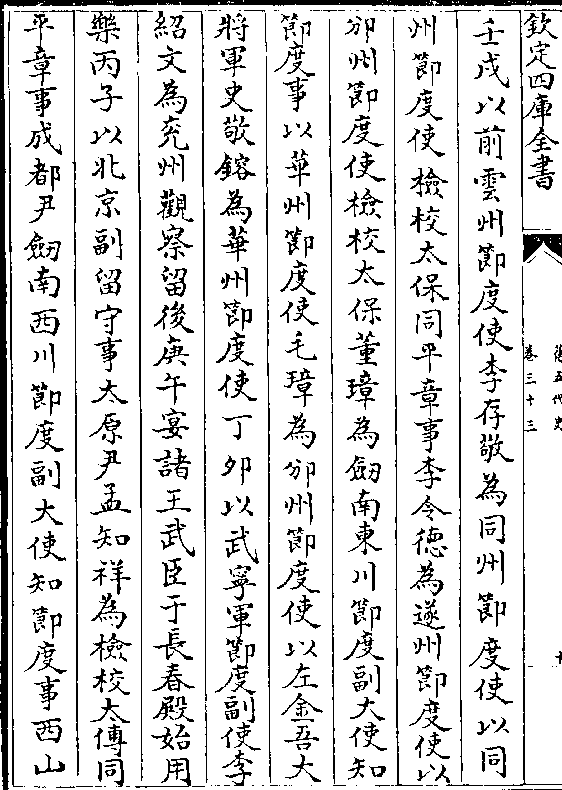 欽定四庫全書
舊五代史
卷三十三
十
壬戌以前雲州節度使李存敬為同州節度使以同
州節度使檢校太保同平章事李令德為遂州節度使以
邠州節度使檢校太保董璋為劒南東川節度副大使知
節度事以華州節度使毛璋為邠州節度使以左金吾大
將軍史敬鎔為華州節度使丁夘以武寧軍節度副使李
紹文為兖州觀察留後庚午宴諸王武臣于長春殿始用
樂丙子以北京副留守事太原尹孟知祥為檢校太傅同
平章事成都尹劒南西川節度副大使知節度事西山